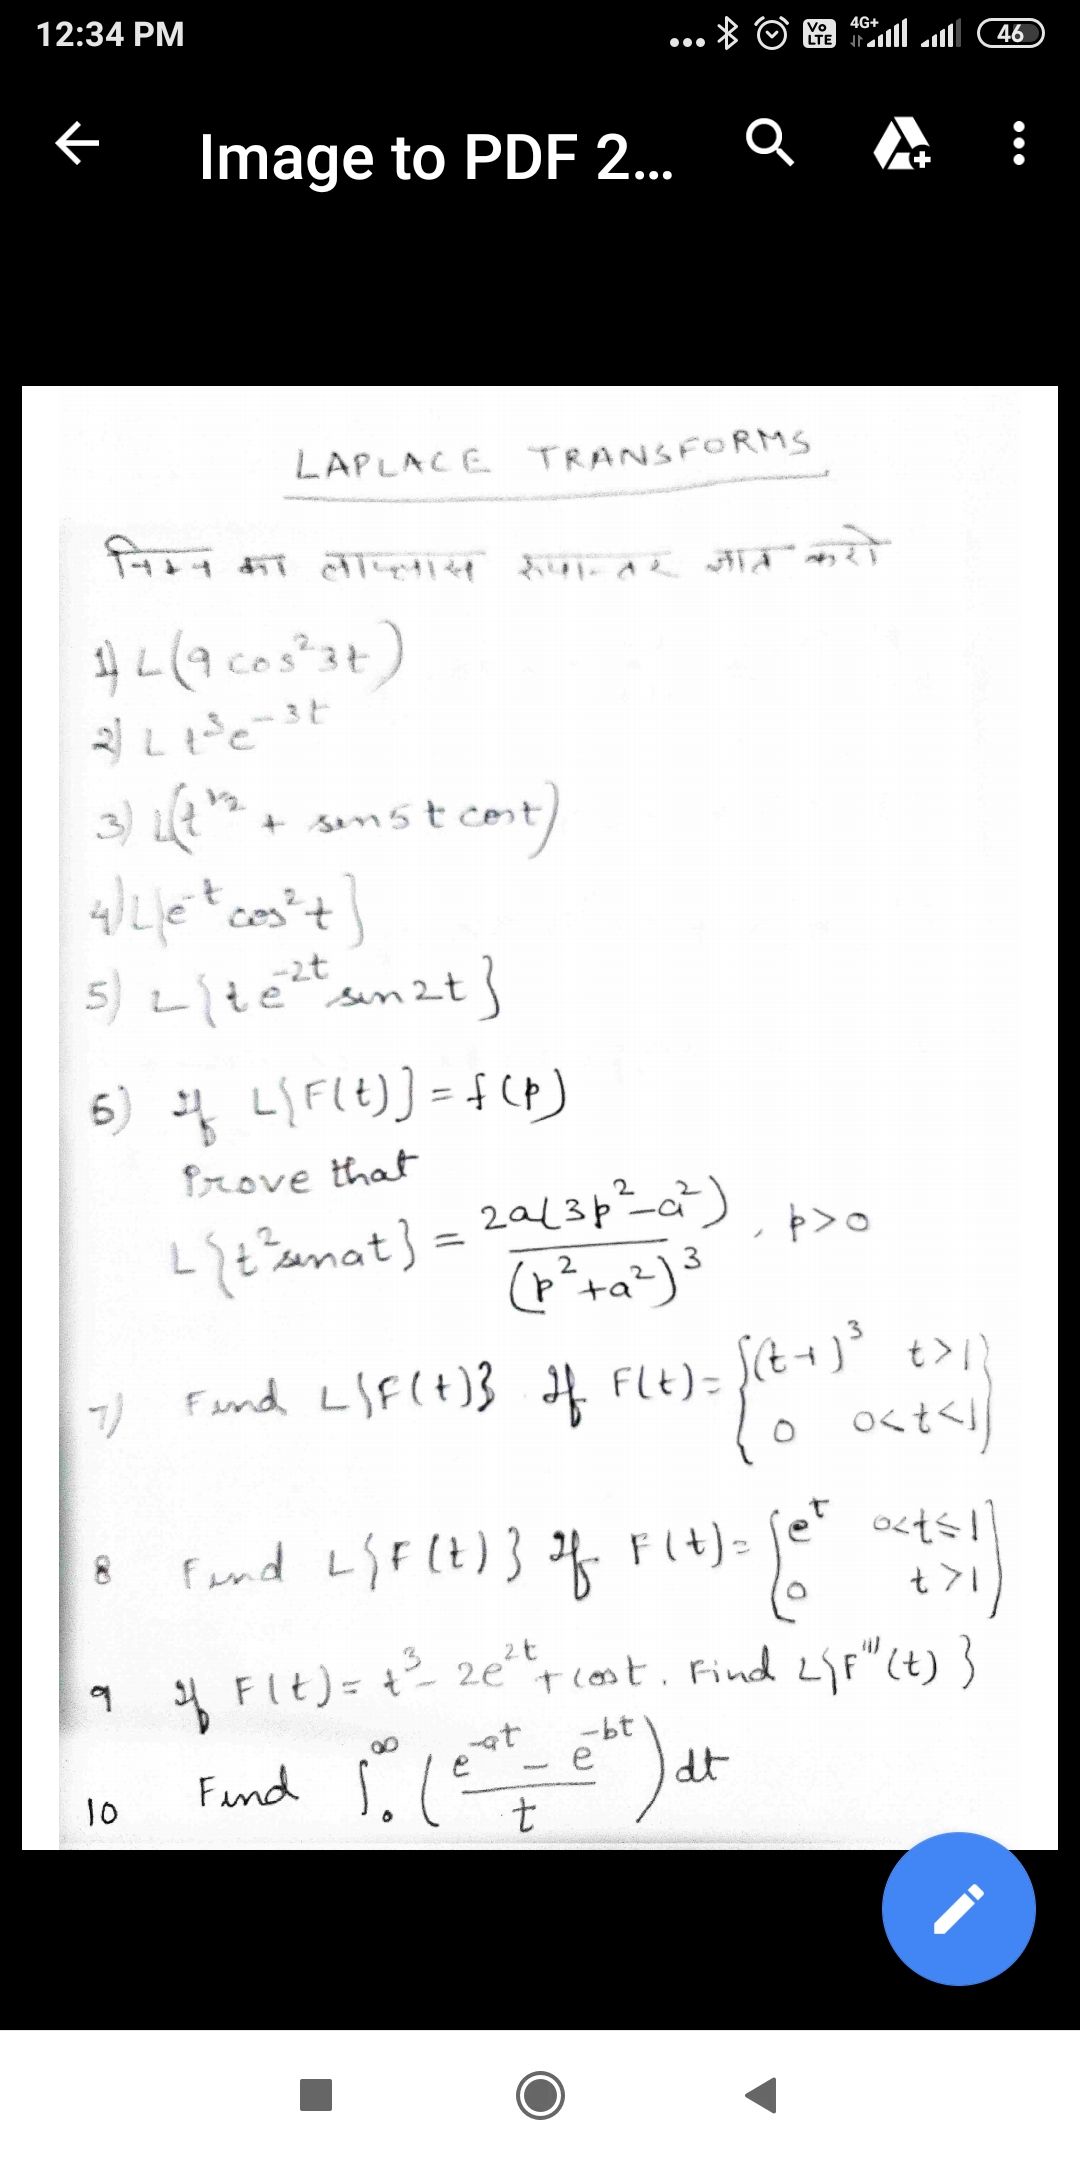 12:34 PM
... VO LTE 4G+ 46
Image to PDF 2...
LAPLACE TRANSFORMS
निम्न का लाप्लास रूपान्तर ज्ञात करो
1) L(9 cos²3t)
2) L t³e⁻³ᵗ
3) L(t^1/2 + sin5t cost)
4) L{e⁻ᵗ cos²t}
5) L{t e⁻²ᵗ sin2t}
6) If L{F(t)} = f(p)
Prove that
L{t²sinat} = 2a(3p²-a²) / (p²+a²)³ , p>0
7) Find L{F(t)} If F(t) = {(t-1)³ t>1
0 0<t<1}
8 Find L{F(t)} If F(t) = {eᵗ 0<t≤1
0 t>1}
9 If F(t) = t³ - 2e²ᵗ + cost. Find L{F''''(t)}
10 Find ∫₀^∞ (e^-at - e^-bt / t) dt